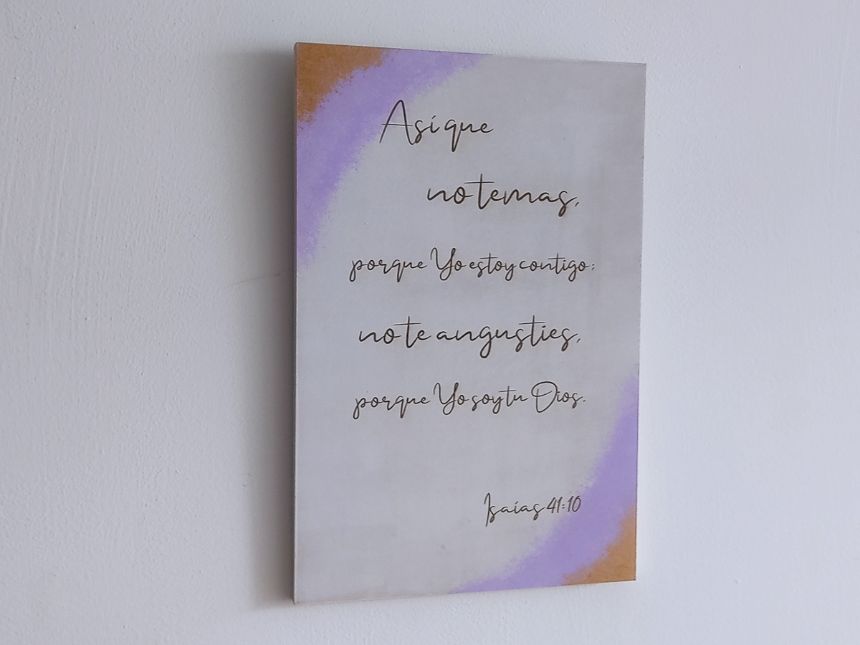 Así que
no temas,
porque Yo estoy contigo;
no te angusties,
porque Yo soy tu Dios.
Isaías 41:10